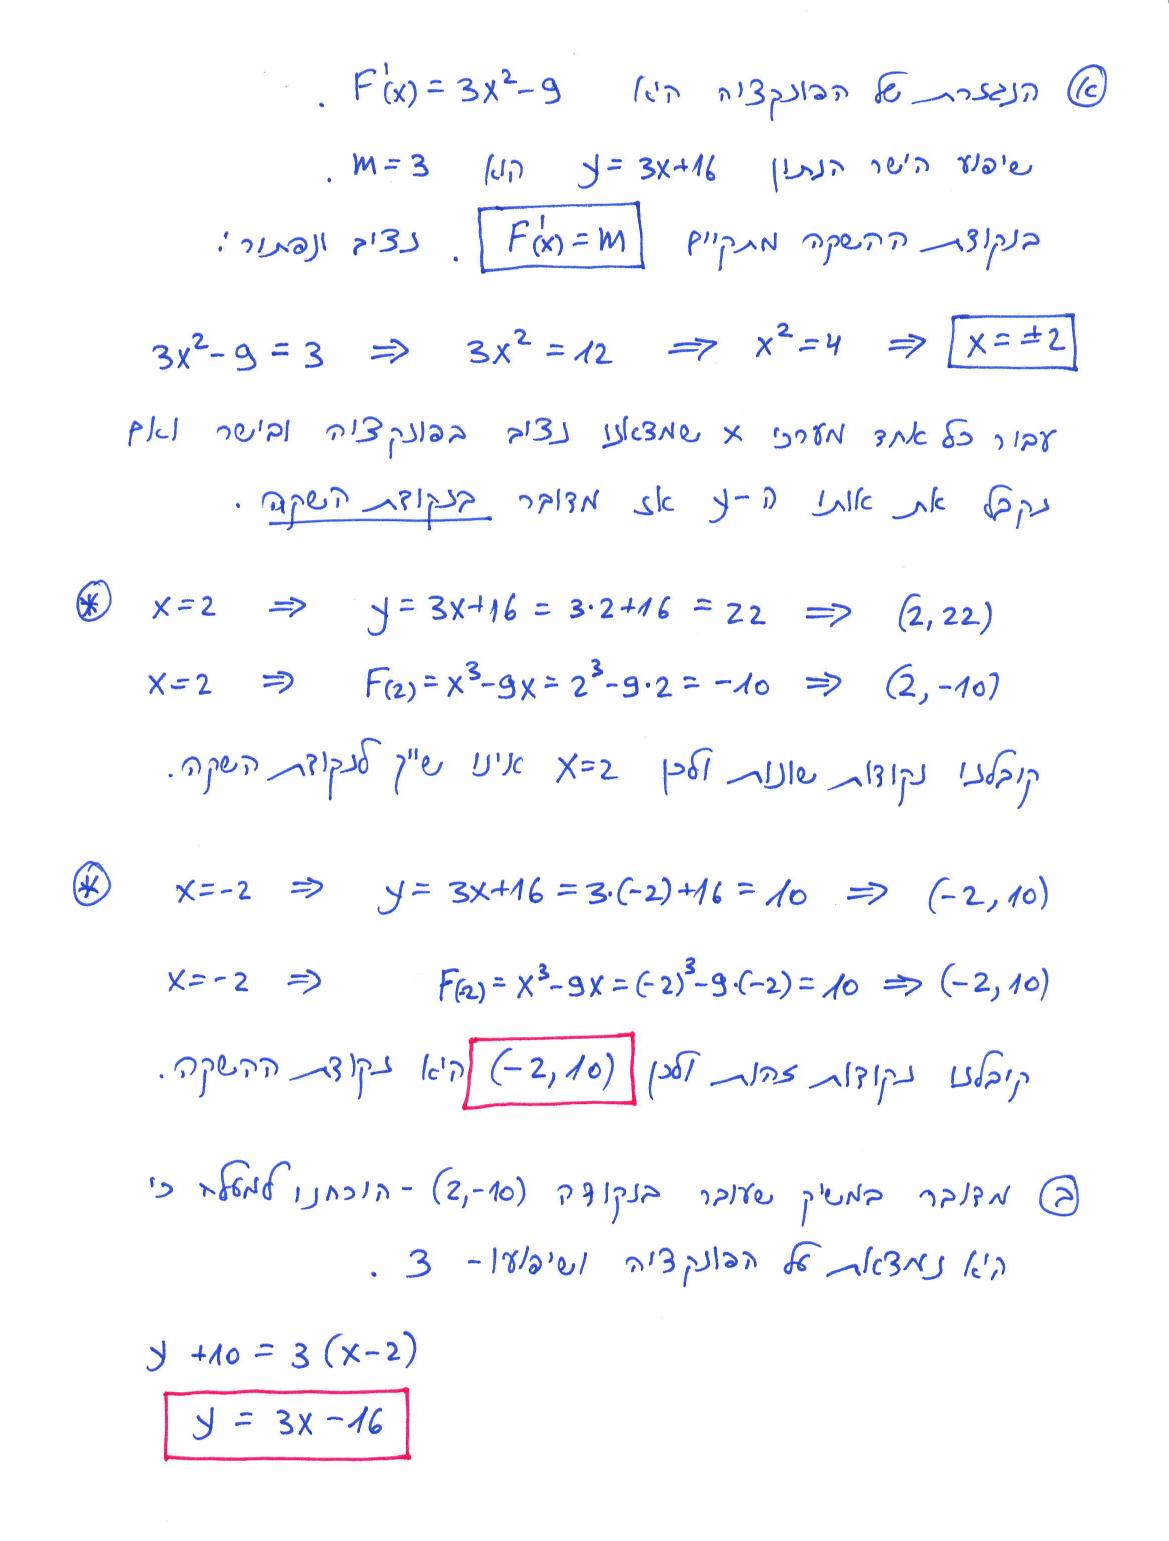 א הנגזרת של הפונקציה היא F'(x) = 3x² - 9 .
שיפוע הישר הנתון y = 3x+16 הוא m = 3 .
בנקודת ההשקה מתקיים F'(x) = m . נציב ונפתור:
3x² - 9 = 3 ⇒ 3x² = 12 ⇒ x² = 4 ⇒ x = ±2
עבור כל אחד מערכי x שמצאנו נציב בפונקציה ובישר ואם
נקבל את אותו ה-y אז מדובר בנקודת השקה .
* x = 2 ⇒ y = 3x+16 = 3·2+16 = 22 ⇒ (2, 22)
x = 2 ⇒ F(2) = x³-9x = 2³-9·2 = -10 ⇒ (2, -10)
קיבלנו נקודות שונות ולכן x=2 אינו שייך לנקודת השקה.
* x = -2 ⇒ y = 3x+16 = 3·(-2)+16 = 10 ⇒ (-2, 10)
x = -2 ⇒ F(-2) = x³-9x = (-2)³-9·(-2) = 10 ⇒ (-2, 10)
קיבלנו נקודות זהות ולכן (-2, 10) היא נקודת ההשקה.
ב מדובר במשיק שעובר בנקודה (2,-10) - הוכחנו למעלה כי
היא נמצאת על הפונקציה ושיפועו - 3 .
y +10 = 3 (x-2)
y = 3x - 16